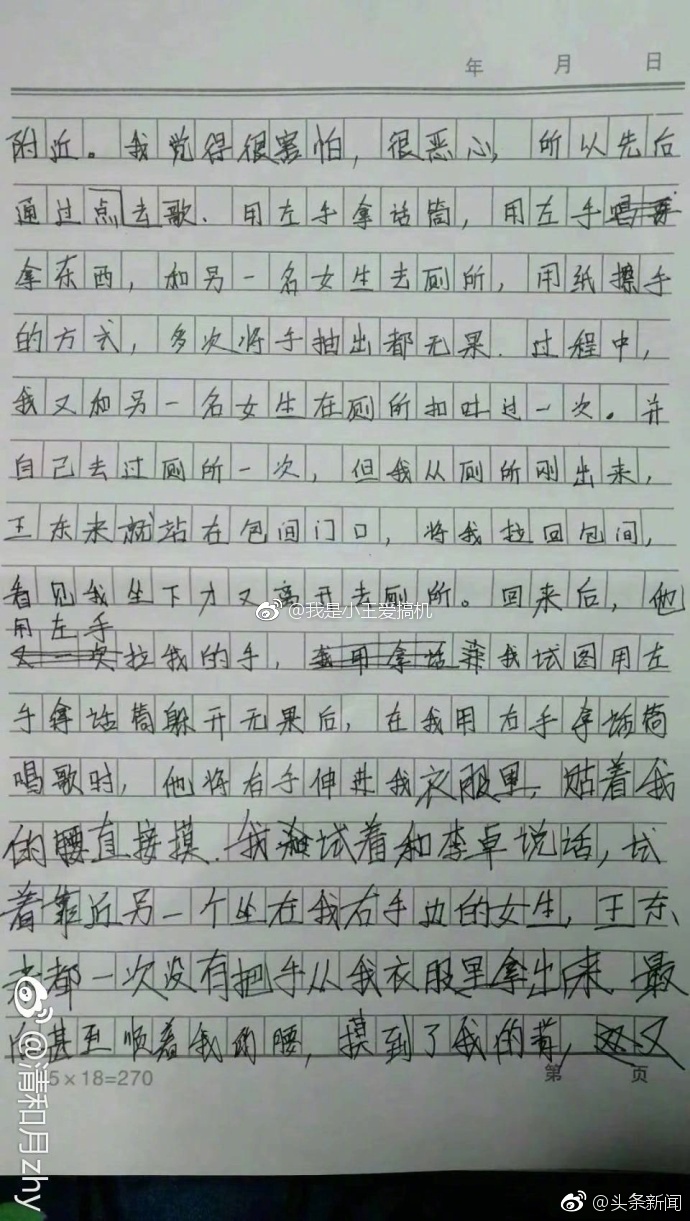 年 月 日
附近。我觉得很害怕，很恶心，所以先后
通过点去歌．用左手拿话筒，用左手
拿东西，和另一名女生去厕所，用纸擦手
的方式，多次将手抽出都无果．过程中，
我又和另一名女生在厕所扣吐过一次。并
自己去过厕所一次，但我从厕所刚出来，
王东来就站在包间门口，将我拉回包间，
看见我坐下才又离开去厕所。回来后，他
@我是小王爱搞机
用左手
又一次拉我的手，我用拿话 我试图用左
手拿话筒躲开无果后，在我用右手拿话筒
唱歌时，他将右手伸进我衣服里，贴着我
的腰直接摸．我试着和李卓说话，试
着靠近另一个坐在我右手边的女生，王东
来都一次没有把手从我衣服里拿出来．最
后甚至顺着我的腰，摸到了我的背，又
5×18=270
第 页
@清和月zhy
@头条新闻